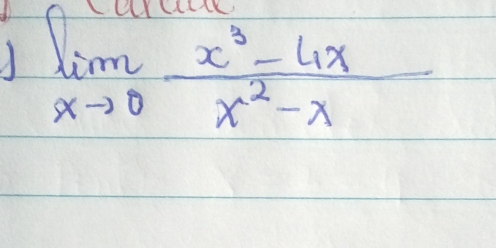 ) lim x→0 (x³ - 4x) / (x² - x)